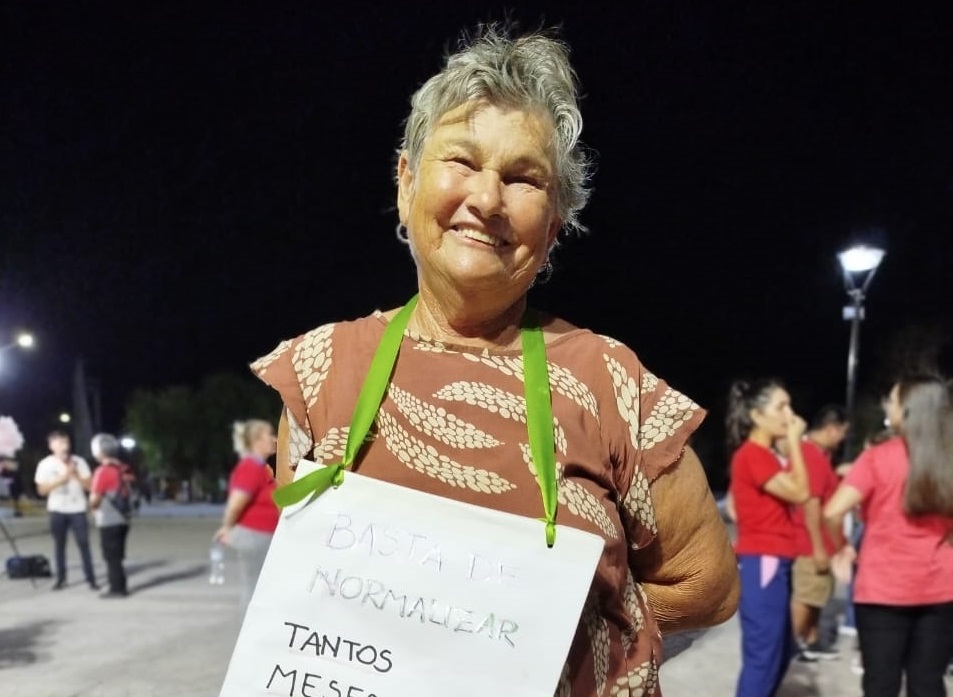 BASTA DE
NORMALIZAR
TANTOS
MESES